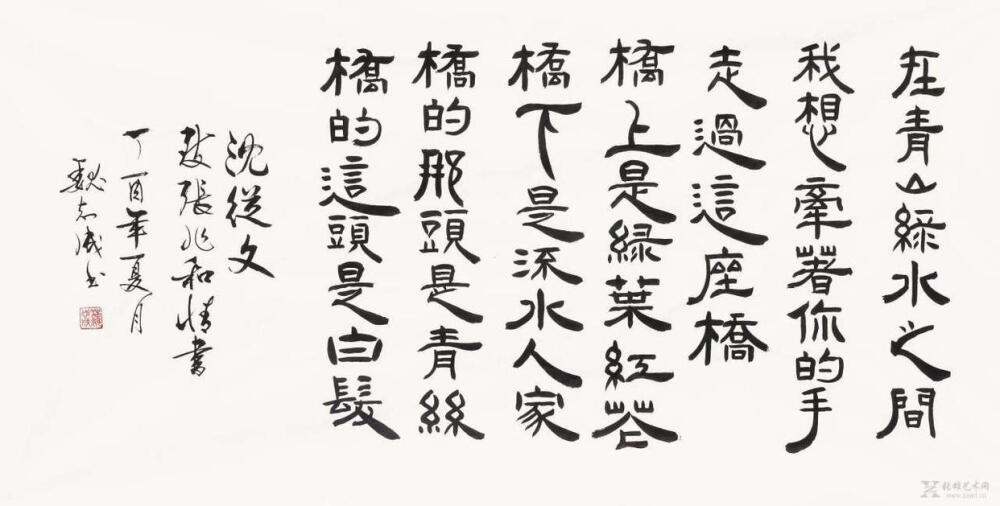 在青山緑水之間
我想牽著你的手
走過這座橋
橋上是緑葉紅花
橋下是流水人家
橋的那頭是青絲
橋的這頭是白髮
沈從文
致張兆和情書
丁酉年夏月
魏志成书
张雄艺术网